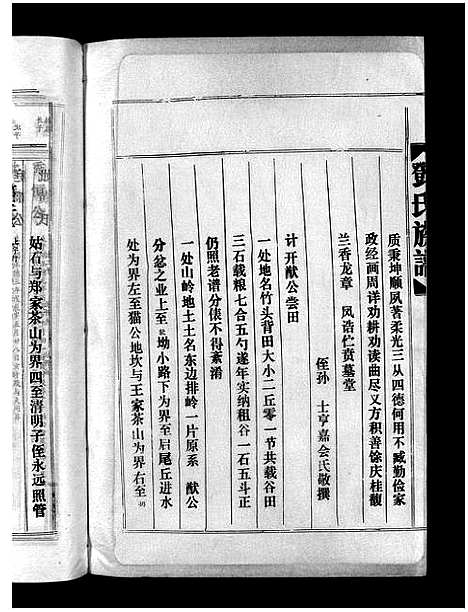 鄧氏族譜
质秉坤顺夙著柔光三从四德何用不臧勤俭家
政经画周洋劝耕劝读曲尽义方积善馀庆桂馥
兰香龙章 凤诰伫贲墓堂
侄孙 士亨嘉会氏敬撰
计开猷公尝田
一处地名竹头背田大小二丘零一节共载谷田
三石载粮七合五勺递年实纳租谷一石五斗正
仍照老谱分俵不得紊淆
一处山岭地土土名东边排岭一片原系 猷公
分忿之业上至 坳小路下为界至启尾丘进水
处为界左至猫公地坎与王家茶山为界右至
姑石与郑家茶山为界四至清明子侄永远照管